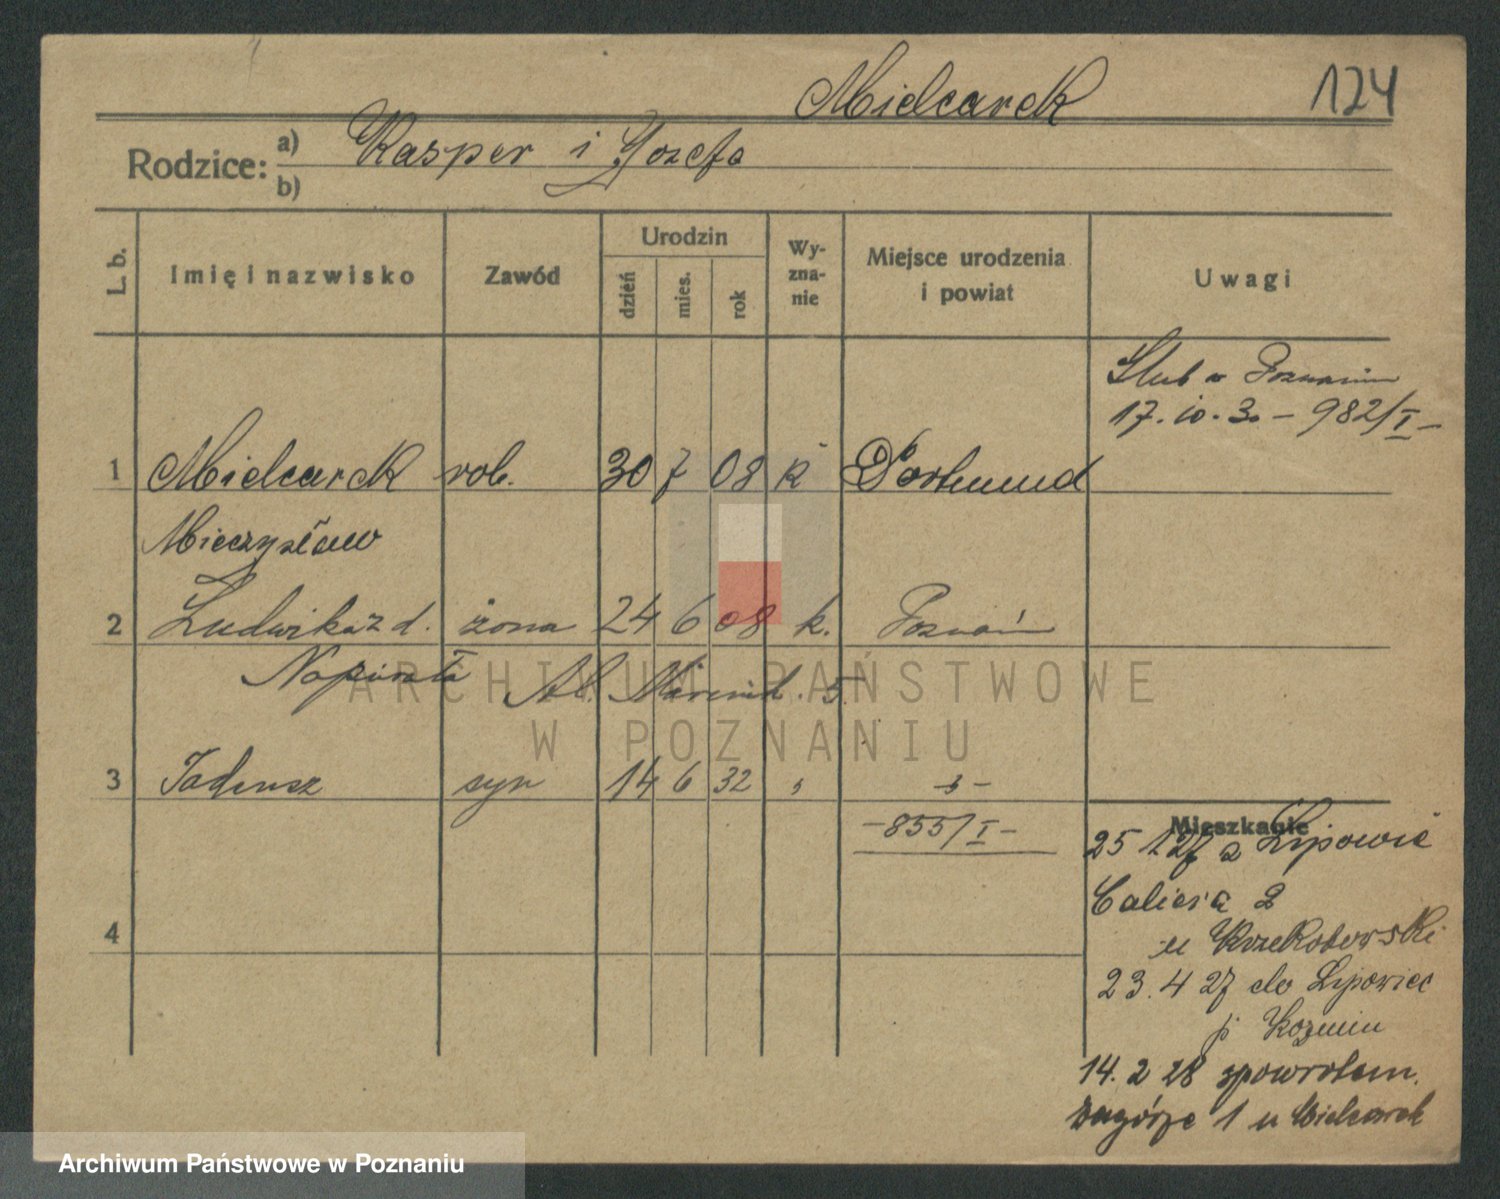 Mielcarek 124
Rodzice: a) Kasper i Jozefa
b)
L. b. Imię i nazwisko Zawód Urodzin dzień mies. rok Wy-zna-nie Miejsce urodzenia i powiat Uwagi
Ślub w Poznaniu
17. 10. 30 – 982/I –
1 Mielcarek rob. 30 7 08 k Dortmund
Mieczysław
2 Ludwika z d. żona 24 6 08 k. Poznań
Napierała Al. Marcink. 5
3 Tadeusz syn 14 6 32 „ -„-
–855/I–
Mieszkanie
25 1 27 z Lipowic
Caliera 2
u Krzekotowski
23. 4 27 do Lipowiec
p Kozmin
14. 2 28 spowrotem.
Zagórze 1 u Mielcarek
4
ARCHIWUM PAŃSTWOWE
W POZNANIU
Archiwum Państwowe w Poznaniu